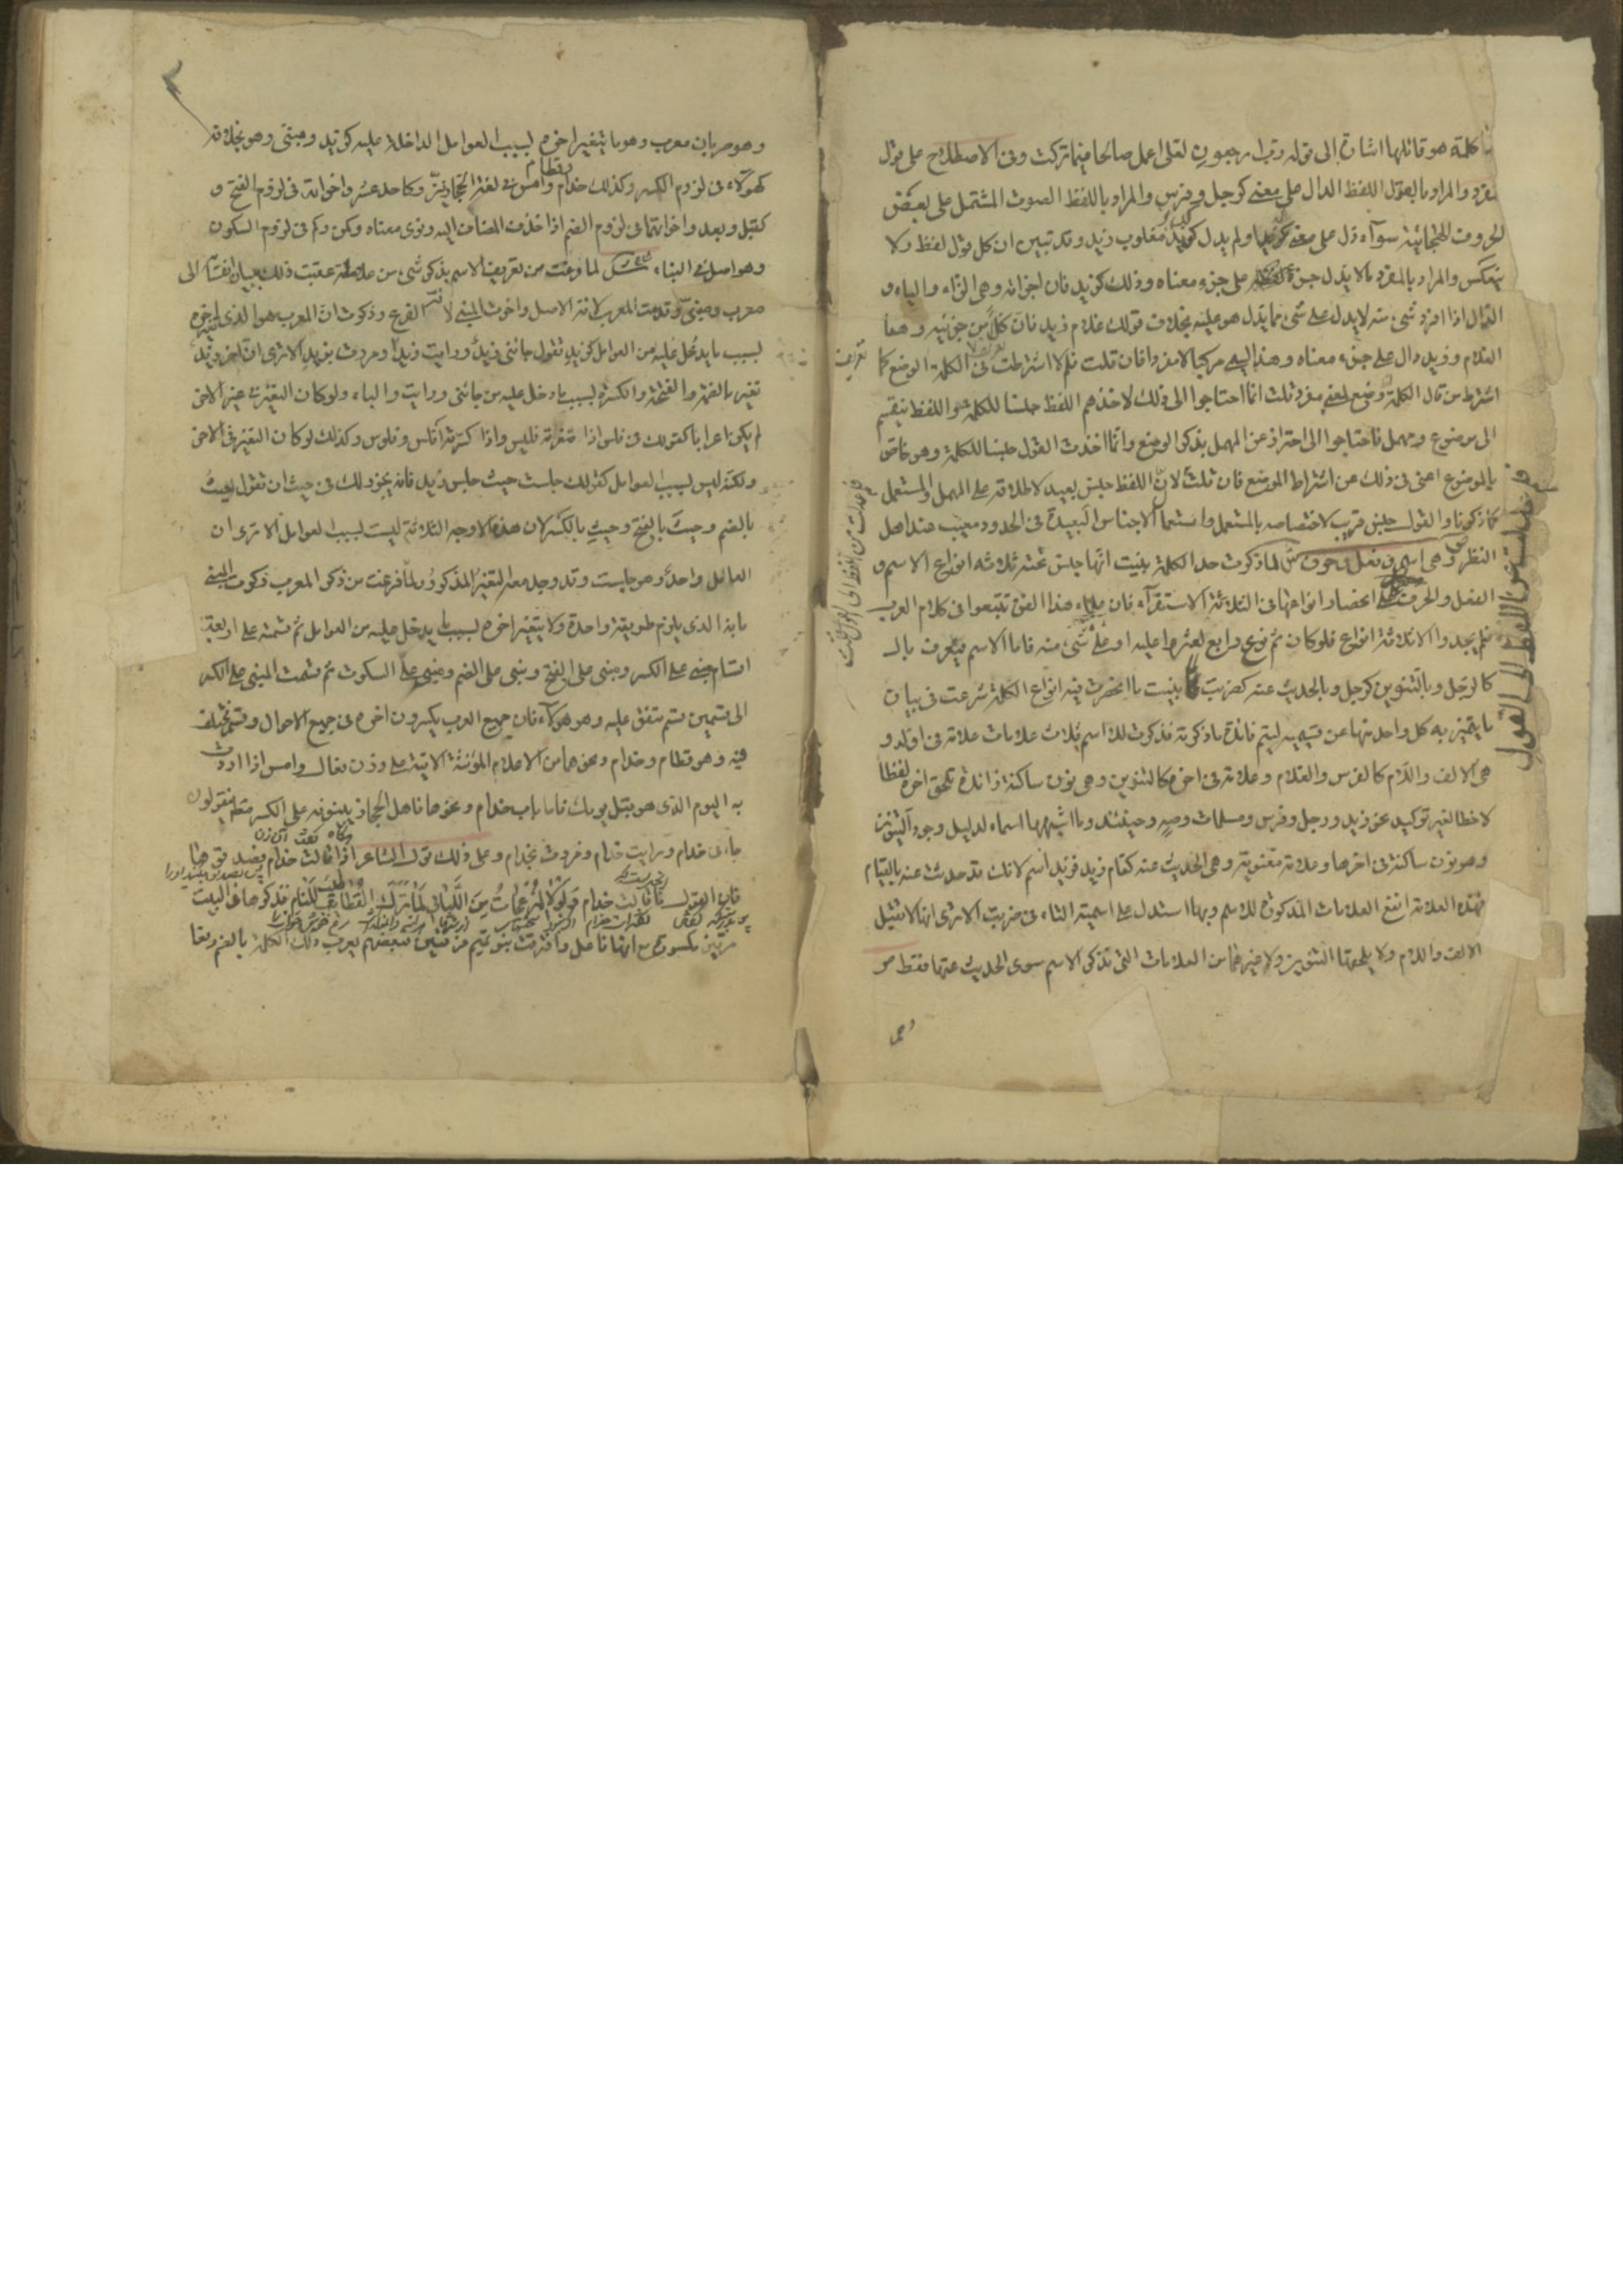 كلمة هو قائلها اشارة الى قوله رب ارجعون لعلى اعمل صالحا فيما تركت وفى الاصطلاح على قول
مفرد والمراد بالقول اللفظ الدال على معنى كرجل وفرس والمراد باللفظ الصوت المشتمل على بعض
الحروف الهجائية سوآء دل على معنى كزيد او لم يدل كديز مقلوب زيد وقد تبين ان كل قول لفظ ولا
ينعكس والمراد بالمفرد ما لا يدل جزء لفظه على جزء معناه وذلك كزيد فان اجزائه وهى الزاء والياء و
الدال اذا افرد شىء منه لا يدل على شىء مما يدل هو عليه بخلاف قولك غلام زيد فان كلا من جزئيه وهما
الغلام وزيد دال على جزء معناه وهذا يسمى مركبا لا مفردا فان قلت فلم لا اشترطت فى الكلمة الوضع كما
اشترط من قال الكلمة وضع لمعنى مفرد قلت انما احتاجوا الى ذلك لاخذهم اللفظ جنسا للكلمة واللفظ ينقسم
الى موضوع ومهمل فاحتاجوا الى احتراز عن المهمل بذكر الوضع وانما اخذت القول جنسا للكلمة وهو خاص
بالموضوع اغنى فى ذلك عن اشتراط الوضع فان قلت لان اللفظ جنس بعيد لاطلاقه على المهمل والمستعمل
كما ذكرنا والقول جنس قريب لاختصاصه بالمستعمل واستعمال الاجناس البعيدة فى الحدود معيب عند اهل
النظر ص وهى اسم وفعل وحرف ش لما ذكرت حد الكلمة بينت انها جنس تحته ثلاثة انواع الاسم و
الفعل والحرف على انحصار انواعها فى الثلاثة الاستقرآء فان علماء هذا الفن تتبعوا فى كلام العرب
فلم يجدوا الا ثلاثة انواع فلو كان ثم نوع رابع لعثروا عليه او على شىء منه فاما الاسم فيعرف بال
كالرجل وبالتنوين كرجل وبالحديث عنه كضربت لما بينت ما انحصرت فيه انواع الكلمة شرعت فى بيان
ما يتميز به كل واحد منها عن قسيميه ليتم فائدة ما ذكرته فذكرت للاسم ثلاث علامات علامة فى اوله و
هى الالف واللام كالفرس والغلام وعلامة فى اخره كالتنوين وهى نون ساكنة زائدة تلحق اخره لفظا
لا خطا لغير توكيد نحو زيد ورجل وفرس ومسلمات وصه وحينئذ وما اشبهها اسماء لدليل وجود التنوين
وهو نون ساكنة فى اخرها وعلامة معنوية وهى الحديث عنه كقام زيد فزيد اسم لانك قد حدثت عنه بالقيام
وهذه العلامة انفع العلامات المذكورة للاسم وبها استدل على اسمية التاء فى ضربت الا ترى انها لا تقبل
الالف واللام ولا يلحقها التنوين ولا غيرهما من العلامات التى تذكر الاسم سوى الحديث عنها فقط ص
وهو
وهو ضربان معرب وهو ما يتغير اخره بسبب العوامل الداخلة عليه كزيد ومبنى وهو بخلافه
كهؤلاء فى لزوم الكسر وكذلك حذام وقطام وامس فى لغة الحجازيين وكاحد عشر واخواته فى لزوم الفتح و
كقبل وبعد واخواتهما فى لزوم الضم اذا حذف المضاف اليه ونوى معناه وكمن وكم فى لزوم السكون
وهو اصل فى البناء ش لما فرغت من تعريف الاسم بذكر شىء من علاماته عقبت ذلك ببيان انقسامه الى
معرب ومبنى وقدمت المعرب لانه الاصل واخرت المبنى لانه الفرع وذكرت ان المعرب هو الذى يتغير اخره
بسبب ما يدخل عليه من العوامل كزيد تقول جائنى زيد ورايت زيدا ومررت بزيد الا ترى ان اخر زيد
تغير بالضمة والفتحة والكسرة بسبب ما دخل عليه من جائنى ورايت والباء ولو كان التغير فى غير الاخر
لم يكن اعرابا كقولك فى فلس اذا صغرته فليس واذا كسرته افلس وفلوس وكذلك لو كان التغير فى الاخر
ولكنه ليس بسبب العوامل كقولك جلست حيث جلس زيد فانه يجوز لك فى حيث ان تقول حيث
بالضم وحيث بالفتح وحيث بالكسر لان هذه الاوجه الثلاثة ليست بسبب العوامل الا ترى ان
العامل واحد وهو جلست وقد وجد معه التغير المذكور ولما فرغت من ذكر المعرب ذكرت المبنى
بانه الذى يلزم طريقة واحدة ولا يتغير اخره بسبب ما يدخل عليه من العوامل ثم قسمته على اربعة
اقسام مبنى على الكسر ومبنى على الفتح ومبنى على الضم ومبنى على السكون ثم قسمت المبنى على الكسر
الى قسمين قسم متفق عليه وهو هؤلاء فان جميع العرب يكسرون اخره فى جميع الاحوال وقسم مختلف
فيه وهو قطام وحذام ونحوهما من الاعلام المؤنثة الاتية على وزن فعال وامس اذا اردت
به اليوم الذى هو قبل يومك فاما باب حذام ونحوها فاهل الحجاز يبنونه على الكسر مطلقا فيقولون
جاءنى حذام ورايت حذام ومررت بحذام وعلى ذلك قول الشاعر اذا قالت حذام فصدقوها
فان القول ما قالت حذام ولولا المزعجات من الليالى لما ترك القطا طيب المنام فذكرها فى البيت
مرتين مكسورة مع انها فاعل وافترقت بنو تميم فرقتين فبعضهم يعرب ذلك الكلمة بالضم رفعا